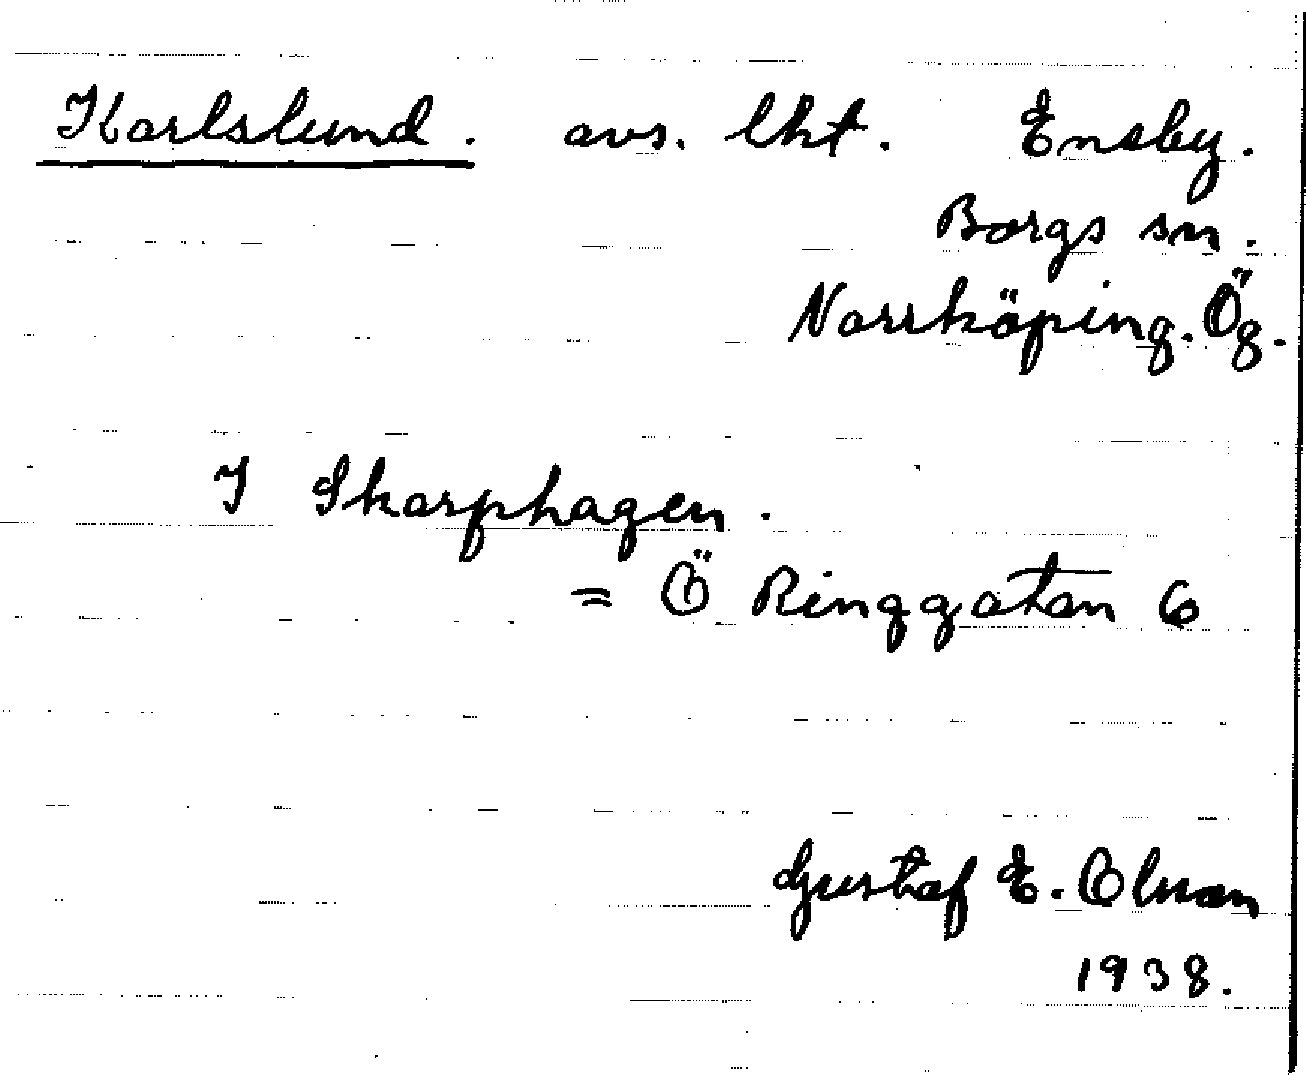 Karlslund. avs. lht. Ensby.
Borgs sn.
Norrköping. Ög.
I Skarphagen.
= Ö Ringgatan 6
Gustaf E. Olsson
1938.